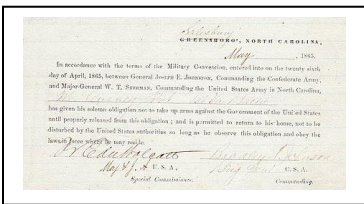 Salisbury
GREENSBORO', NORTH CAROLINA,
May , 1865.
In accordance with the terms of the Military Convention, entered into on the twenty sixth
day of April, 1865, between General JOSEPH E. JOHNSTON, Commanding the Confederate Army,
and Major-General W. T. SHERMAN, Commanding the United States Army in North Carolina,
has given his solemn obligation not to take up arms against the Government of the United States
until properly released from this obligation; and is permitted to return to his home, not to be
disturbed by the United States authorities so long as he observe this obligation and obey the
laws in force where he may reside.
Bradley T. Johnson
U. S. A., C. S. A.
Special Commissioner. Commanding.